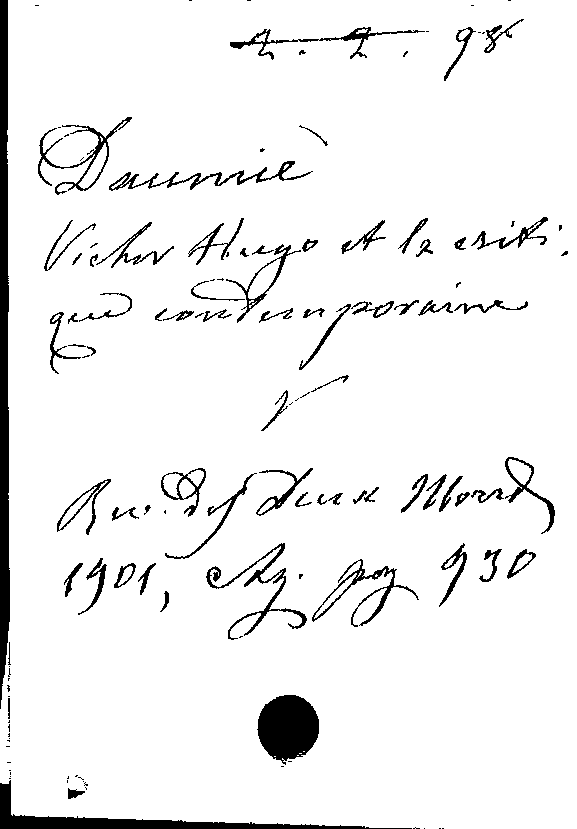 2. 2. 98
Daumič
Victor Hugo et la criti-
que contemporaine
V
Rev. des deux Mond
1901, Ag. pag 930